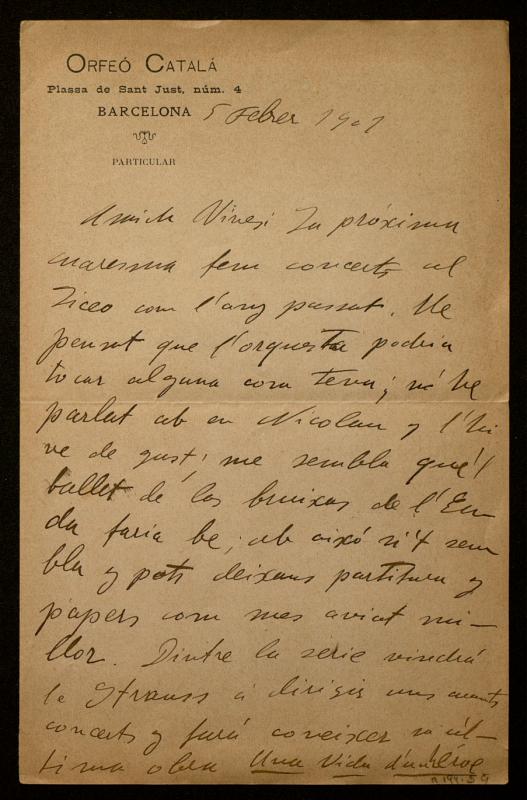 ORFEÓ CATALÁ
Plassa de Sant Just, núm. 4
BARCELONA 5 Febrer 1901
PARTICULAR
Amich Vives: La próxima
quaresma fem concerts al
Liceo com l'any passat. He
pensat que l'orquesta podria
tocar alguna cosa teva; n'he
parlat ab en Nicolau y l'hi
ve de gust; me sembla que'l
ballet de las bruixas de l'Eu-
da faria be; ab aixó si't sem
bla y pots deixans partitura y
papers com mes aviat mi-
llor. Dintre la serie vindrá
le Strauss á dirigir uns quants
concerts y fará coneixer sa úl-
tima obra Una Vida d'un Héroe